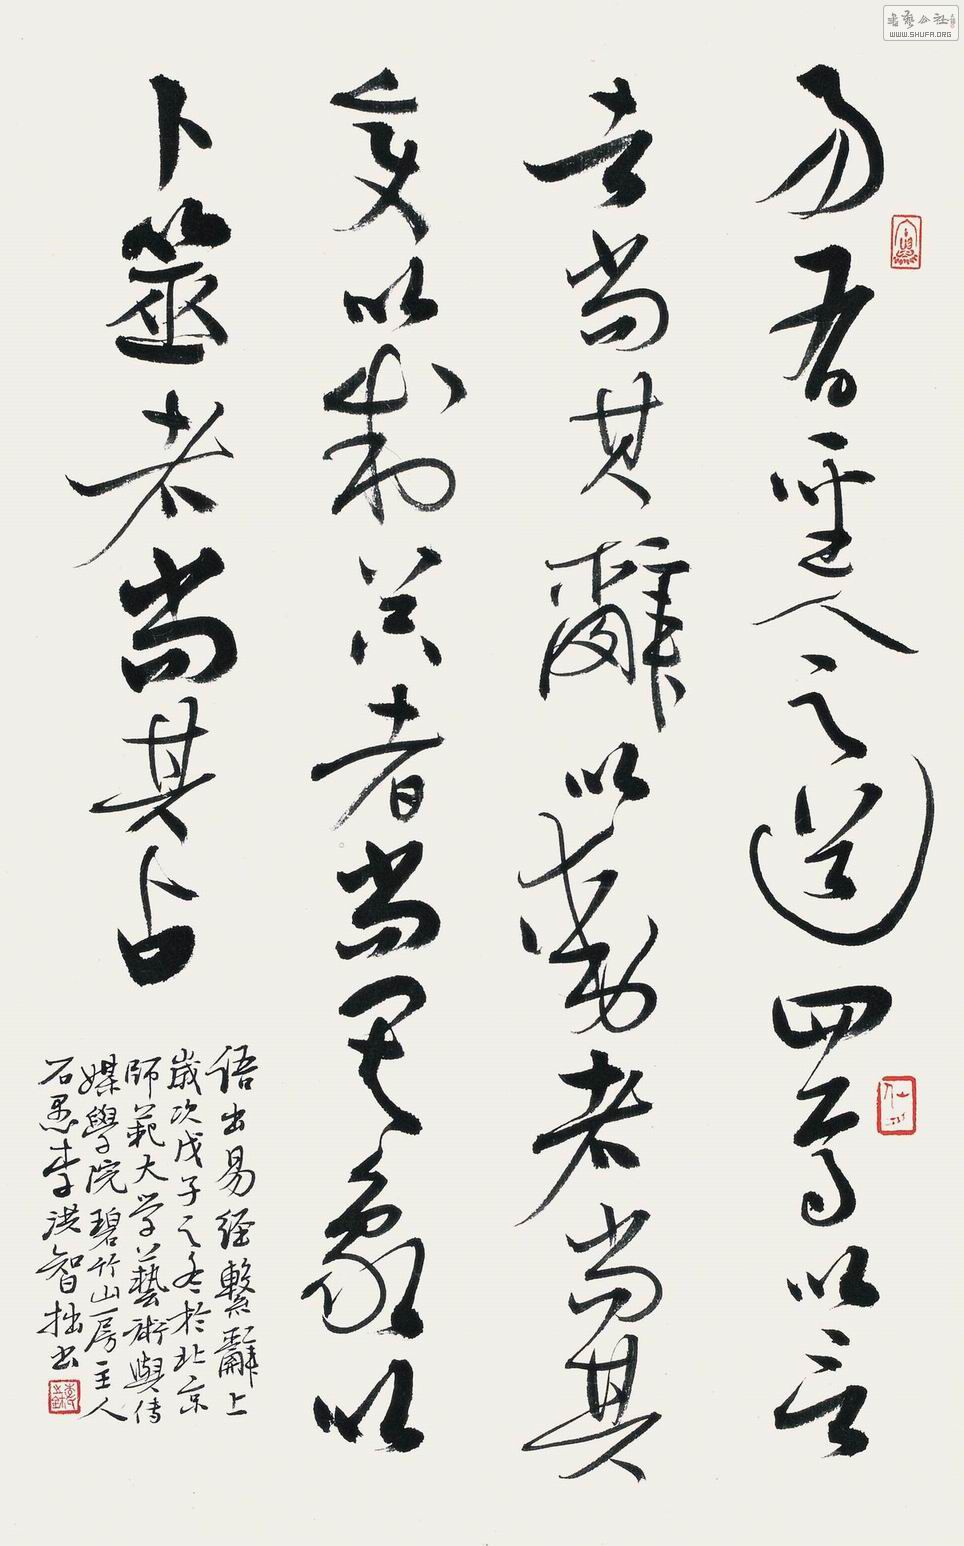 書藝公社
WWW.SHUFA.ORG
易有聖人之道四焉以言
者尚其辭以動者尚其
變以制器者尚其象以
卜筮者尚其占
語出易經繫辭上
歲次戊子之冬於北京
師範大学藝術與傳
媒學院碧竹山房主人
石愚李洪智拙书